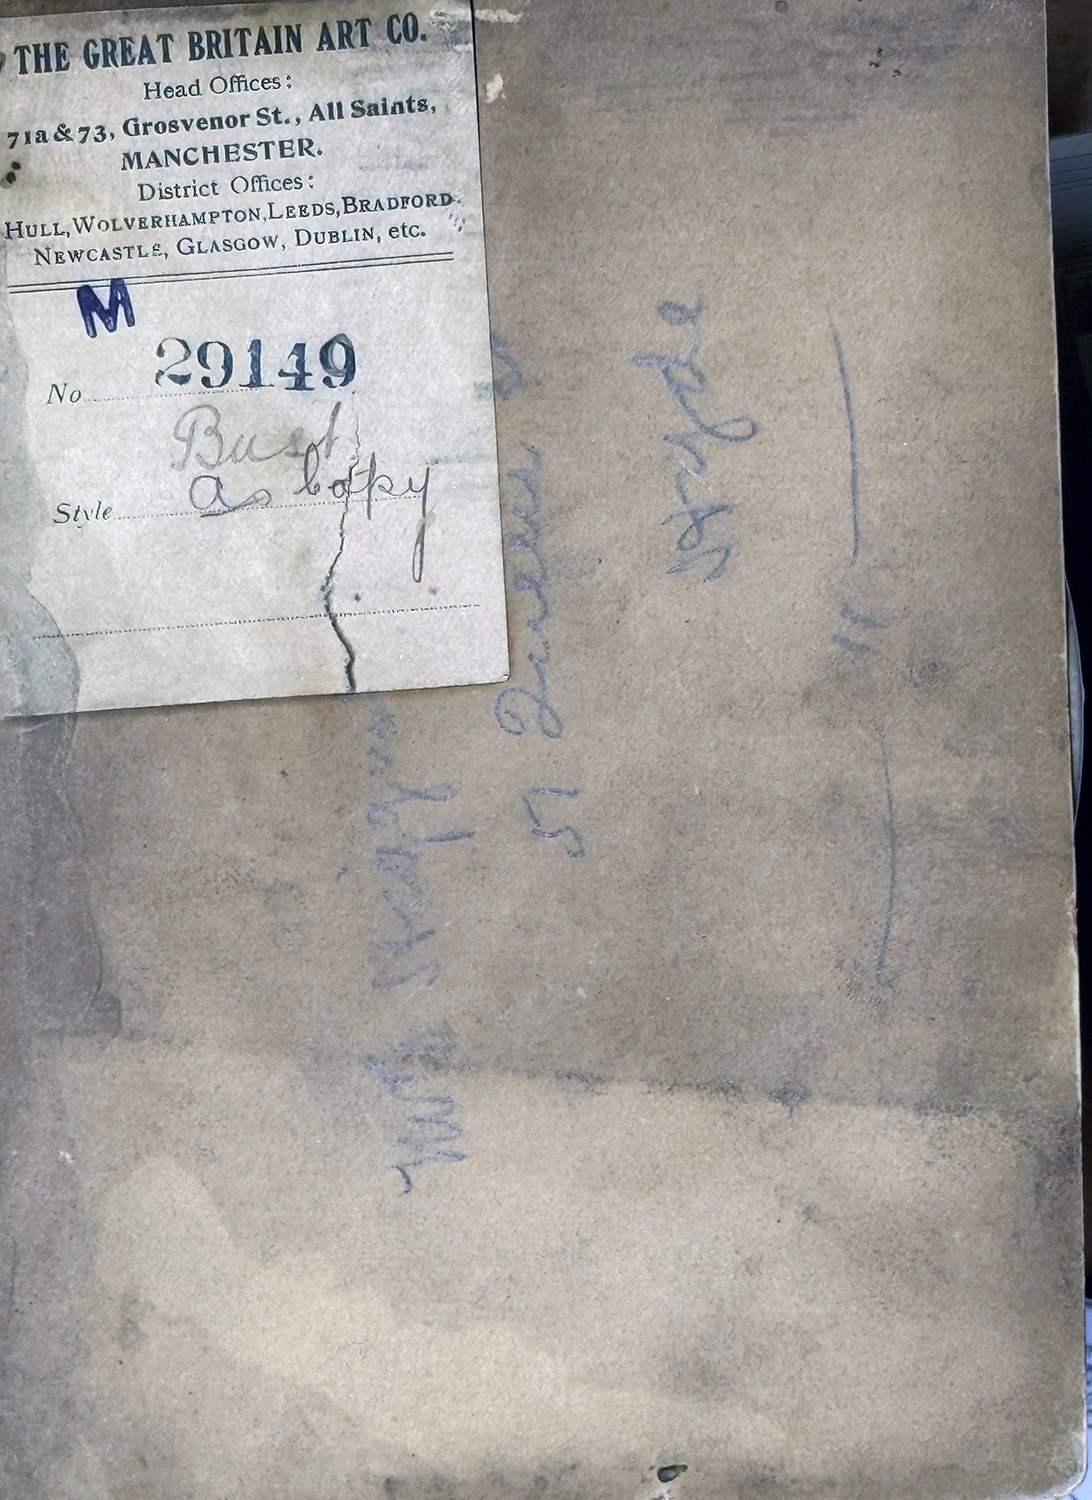 THE GREAT BRITAIN ART CO.
Head Offices:
71a & 73, Grosvenor St., All Saints,
MANCHESTER.
District Offices:
HULL, WOLVERHAMPTON, LEEDS, BRADFORD.
NEWCASTLE, GLASGOW, DUBLIN, etc.
M
No 29149
Bust
Style as Copy
Mrs
57 St
Hyde